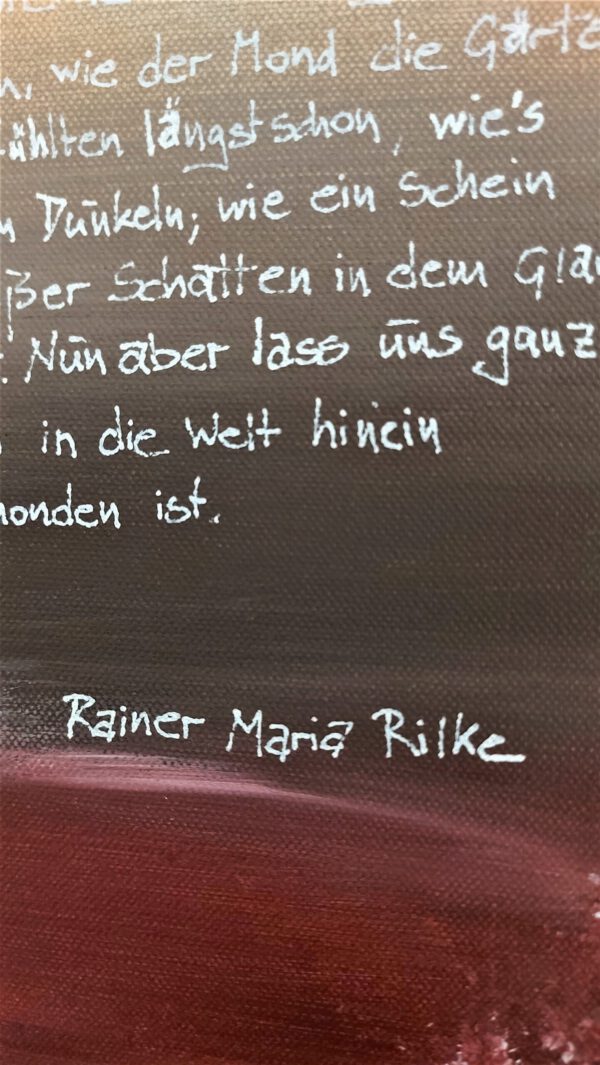 n, wie der Mond die Gärte
ühlten längst schon, wie's
n Dunkeln; wie ein Schein
ßer Schatten in dem Gla
. Nun aber lass uns ganz
in die Welt hinein
monden ist.
Rainer Maria Rilke